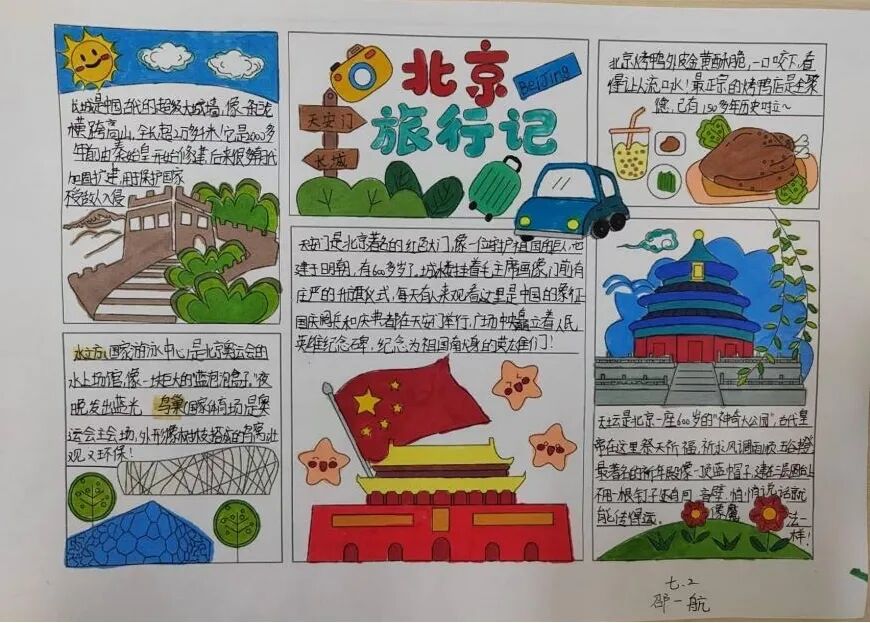 北京
BeiJing
旅行记
天安门
长城
长城是中国古代的超级大城墙,像一条巨龙
横跨高山,全长超2万多千米!它是2000多
年前由秦始皇开始修建,后来很多朝代
加固扩建,用于保护国家
不受敌人入侵
北京烤鸭外皮金黄酥脆,一口咬下,香
得让人流口水!最正宗的烤鸭店是全聚
德,已有150多年历史啦~
天安门是北京著名的红色大门,像一位守护祖国的巨人,它
建于明朝,有600多岁了,城楼挂着毛主席画像,门前有
庄严的升旗仪式,每天有人来观看这里是中国的象征
国庆阅兵和庆典都在天安门举行,广场中央矗立着人民
英雄纪念碑,纪念为祖国献身的英雄们!
水立方(国家游泳中心)是北京奥运会的
水上场馆,像一块巨大的"蓝色泡泡盒子"夜
晚发出蓝光 鸟巢(国家体育场)是奥
运会主会场,外形像树枝搭成的鸟窝,壮
观又环保!
天坛是北京一座600岁的"神奇大公园",古代皇
帝在这里祭天祈福,祈求风调雨顺,五谷丰登
最著名的祈年殿像一顶蓝帽子,建在三层圆台上
不用一根钉子还有回音壁,悄悄说话就
能传得远,像魔法一样!
七.2
邵一航